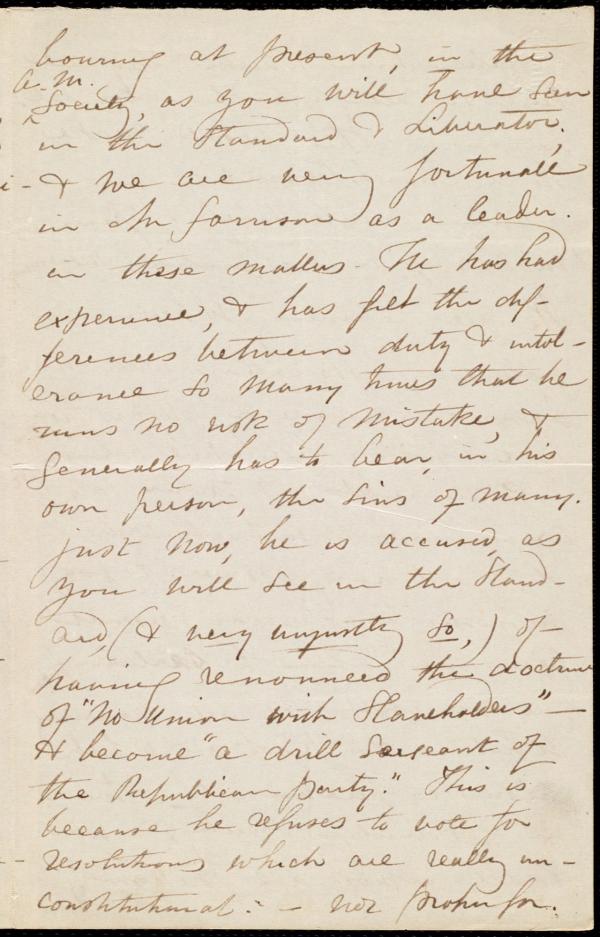 bouring at present, in the
A. M.
Society, as you will have seen
in the Standard & Liberator,
& we are very fortunate
in Mr Garrison as a leader.
in these matters. He has had
experience, & has felt the dif-
ferences between duty & intol-
erance so many times that he
runs no risk of mistake, &
generally has to bear, in his
own person, the sins of many.
just now, he is accused, as
you will see in the Stand-
ard, (& very unjustly so,) of
having renounced the doctrine
of "No Union with Slaveholders" —
& become "a drill Sergeant of
the Republican party." This is
because he refuses to vote for
resolutions which are really un-
constitutional: — nor proper for.